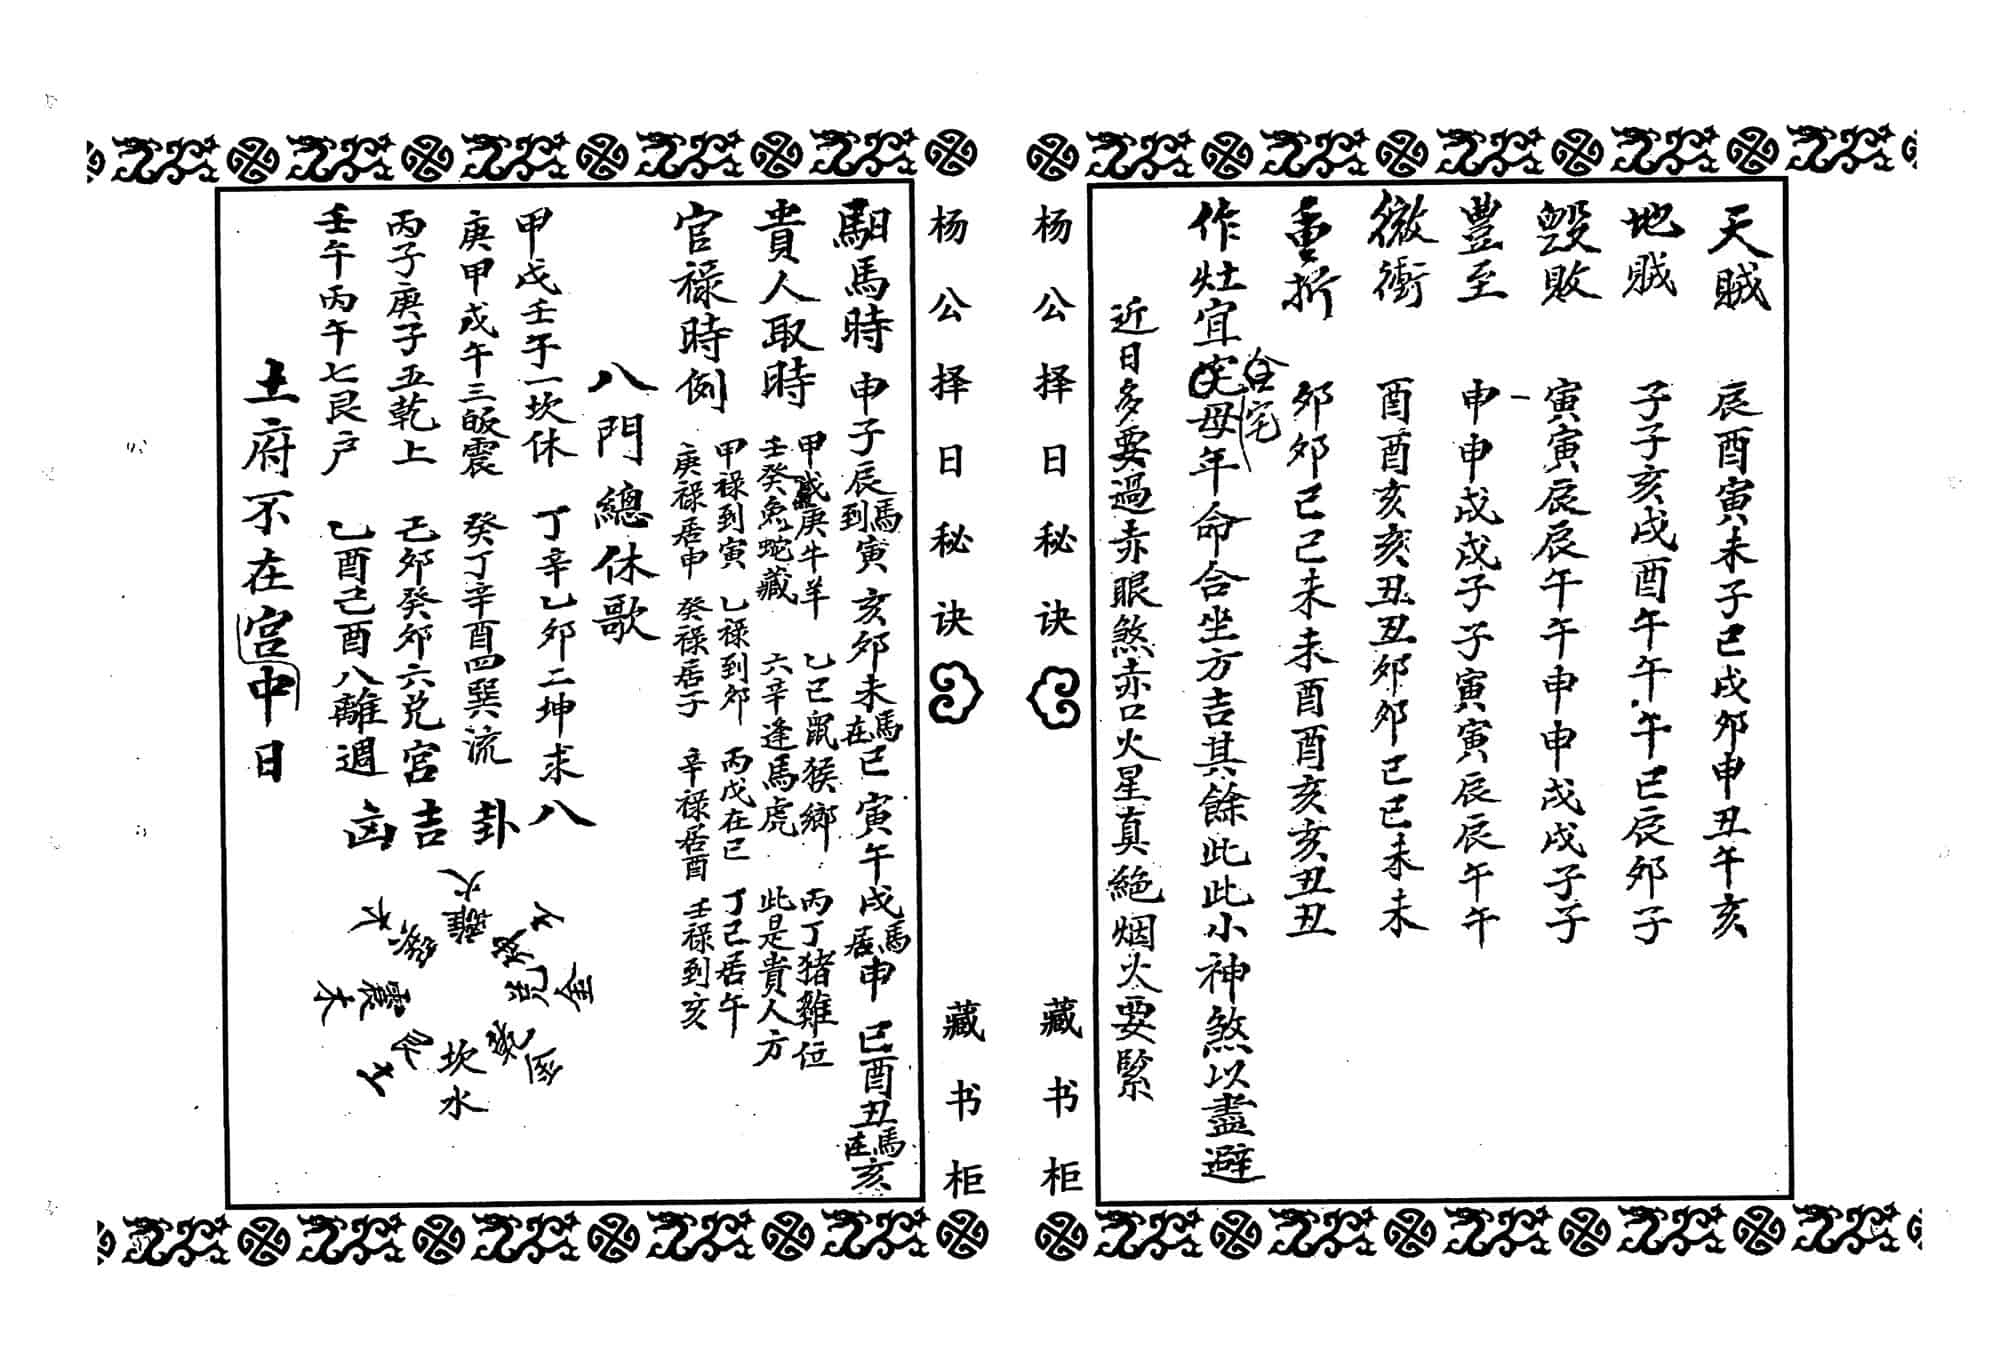 天賊 辰酉寅未子巳戌夘申丑午亥
地賊 子子亥戌酉午午午巳辰夘子
毀敗 寅寅辰辰午午申申戌戌子子
豊至 申申戌戌子子寅寅辰辰午午
徼衝 酉酉亥亥丑丑夘夘巳巳未未
重折 夘夘巳巳未未酉酉亥亥丑丑
作灶宜宅母年命合坐方吉其餘此此小神煞以盡避
合宅
近日多要過赤眼煞赤口火星真絶烟火要緊
杨公择日秘诀 藏书柜
杨公择日秘诀 藏书柜
馹馬時 申子辰馬到寅 亥夘未馬在巳 寅午戌馬居申 巳酉丑馬在亥
貴人取時 甲戊庚牛羊 乙己鼠猴鄉 丙丁猪雞位
壬癸兔蛇藏 六辛逢馬虎 此是貴人方
官祿時例 甲祿到寅 乙祿到夘 丙戊在巳 丁己居午
庚祿居申 癸祿居子 辛祿居酉 壬祿到亥
八門總休歌
甲戊壬子一坎休 丁辛乙夘二坤求
庚甲戊午三皈震 癸丁辛酉四巽流
丙子庚子五乾上 己夘癸夘六兑宮
壬午丙午七艮户 乙酉己酉八離週
八卦吉凶
離火
坤土
兑金
乾金
坎水
艮土
震木
巽木
土府不在宫中日